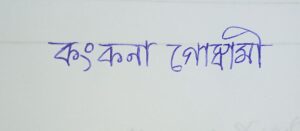 কংকনা গোস্বামী